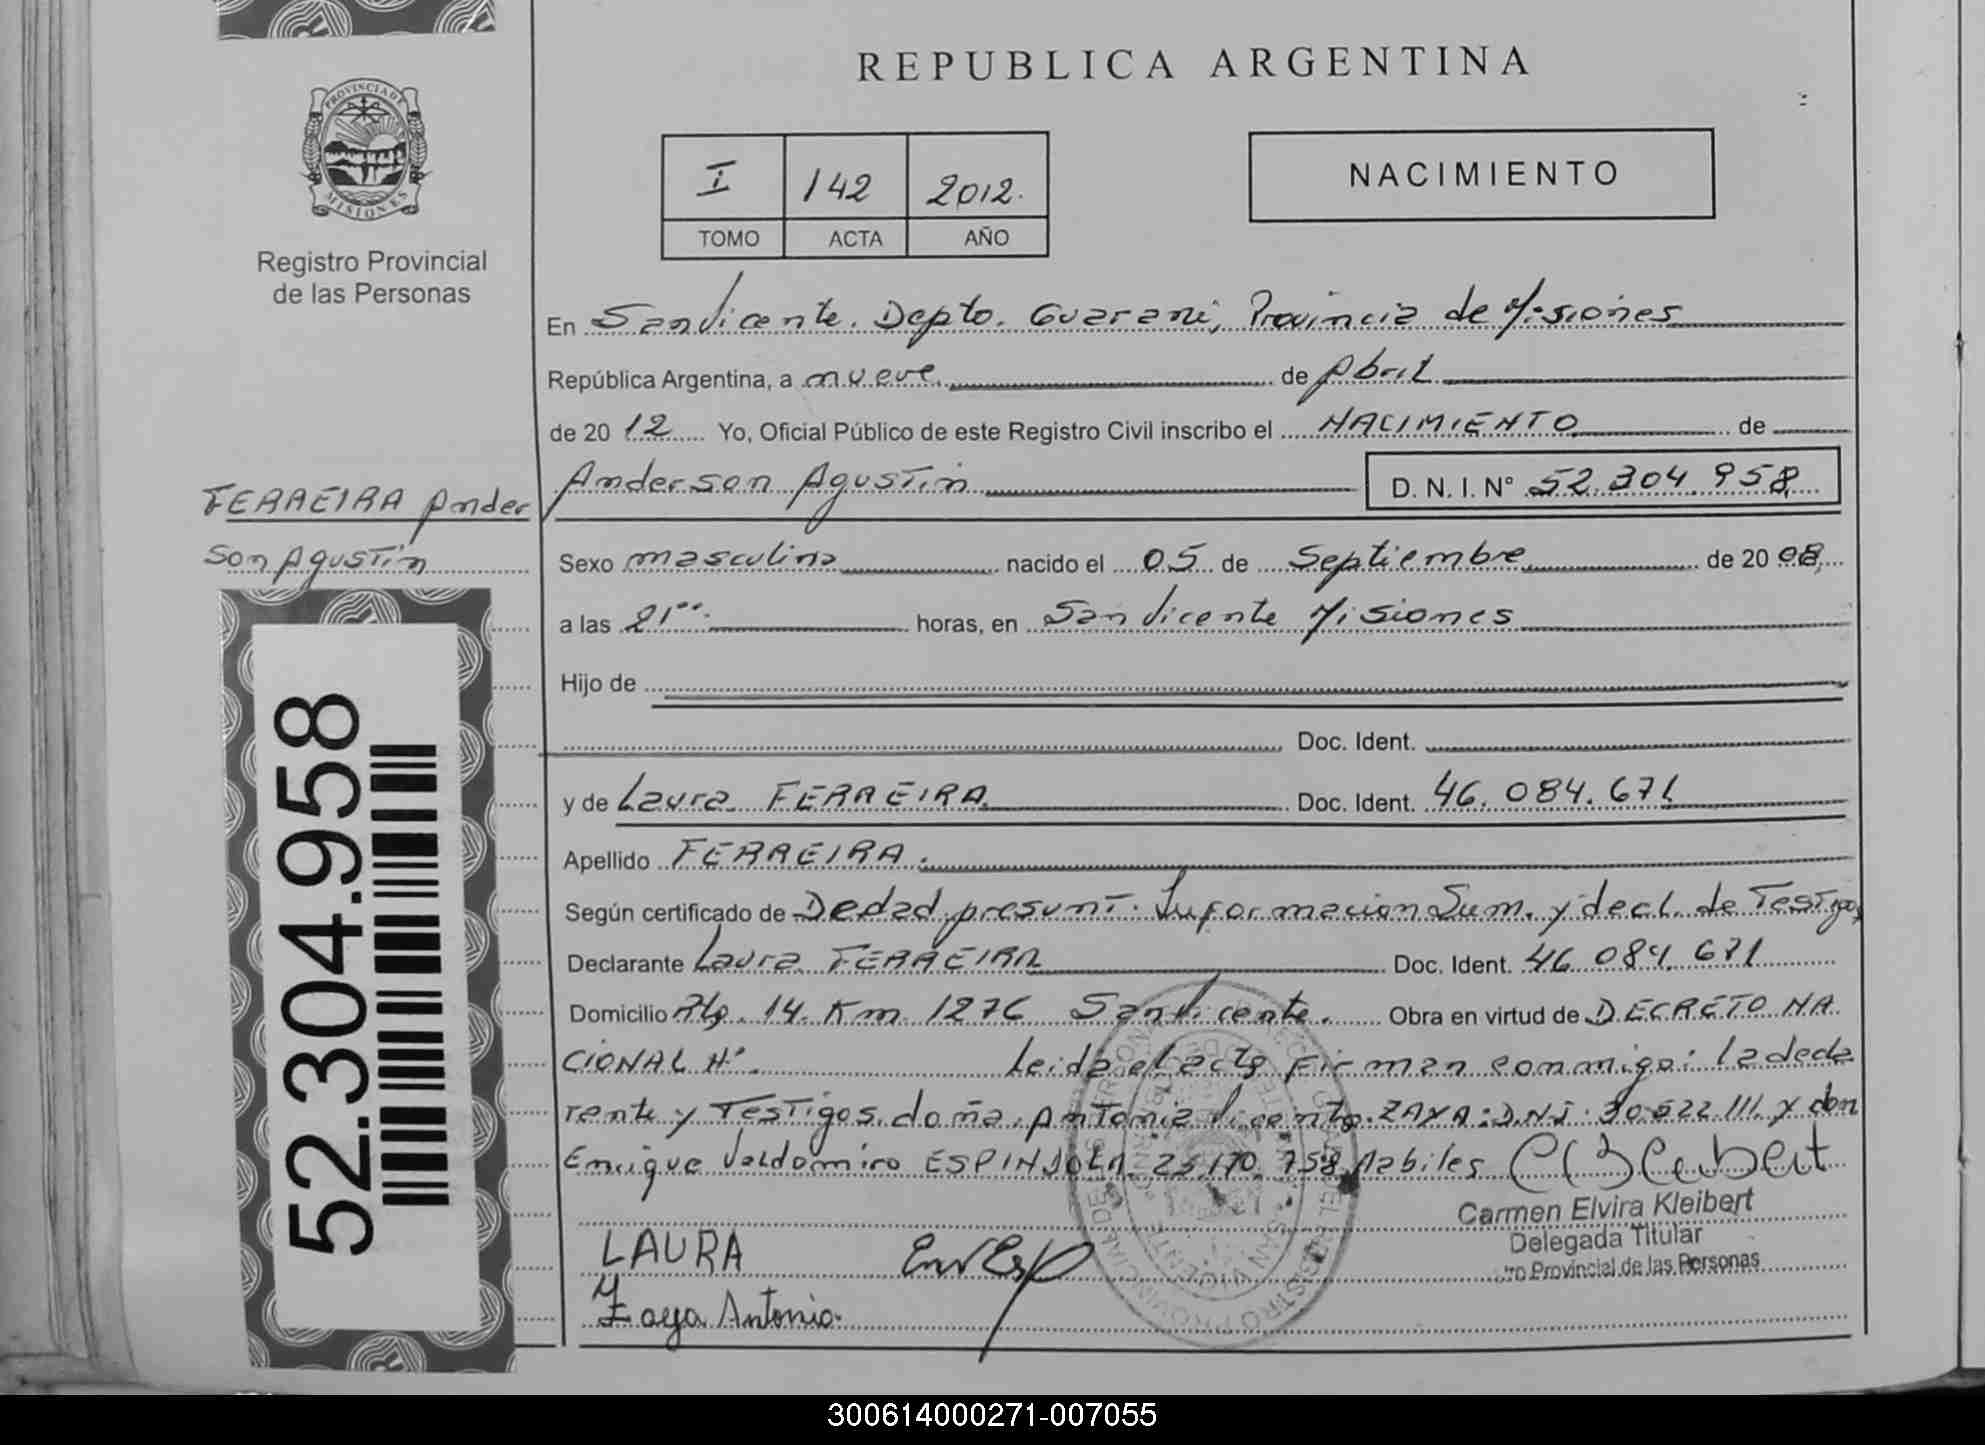 REPUBLICA ARGENTINA
PROVINCIA DE MISIONES
Registro Provincial
de las Personas
I 142 2012.
TOMO ACTA AÑO
NACIMIENTO
En San Vicente. Depto. Guarani, Provincia de Misiones
República Argentina, a nueve de Abril
de 20 12 Yo, Oficial Público de este Registro Civil inscribo el NACIMIENTO de
Anderson Agustin D. N. I. N° 52.304.958
FERREIRA Ander
son Agustin
Sexo masculino nacido el 05 de Septiembre de 20 08,
a las 21°°. horas, en San Vicente Misiones
Hijo de
Doc. Ident.
y de Laura FERREIRA Doc. Ident. 46.084.671
Apellido FERREIRA.
Según certificado de Dedad presunt. Informacion Sum. y decl. de Testigos
Declarante Laura FERREIRA Doc. Ident. 46 084. 671
Domicilio Rta. 14. Km 1276 San Vicente. Obra en virtud de DECRETO NA
CIONAL N°. Leida el acta Firman conmigo: la decla
rante y Testigos doña Antonia Vicenta ZAYA: D.N.I. 30.522.111 y don
Enrique Valdomiro ESPINDOLA 25.170.758 Habiles
Carmen Elvira Kleibert
Delegada Titular
Provincial de las Personas
LAURA
Zaya Antonia.
52.304.958
300614000271-007055